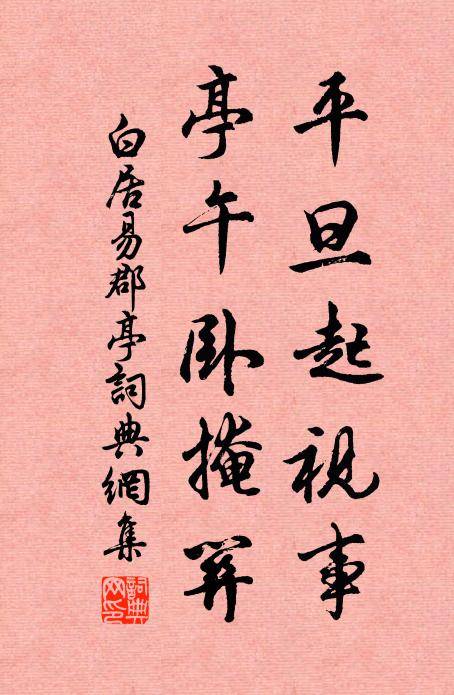 平旦起視事
亭午臥掩關
白居易郡亭詞典網集
詞典網印